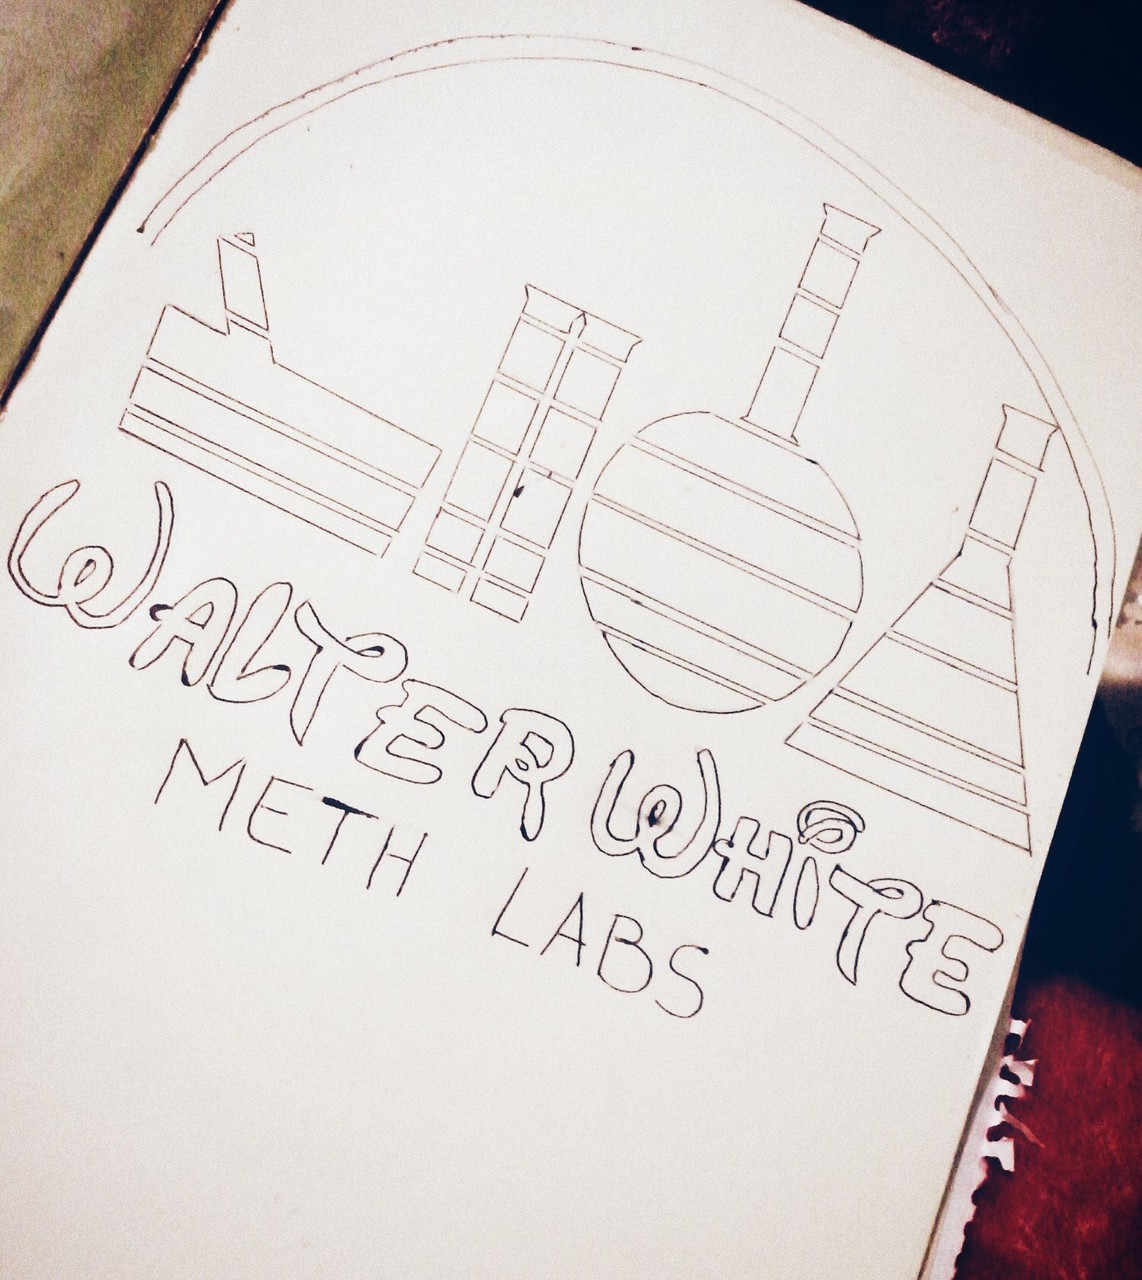 WALTER WHiTE
METH LABS